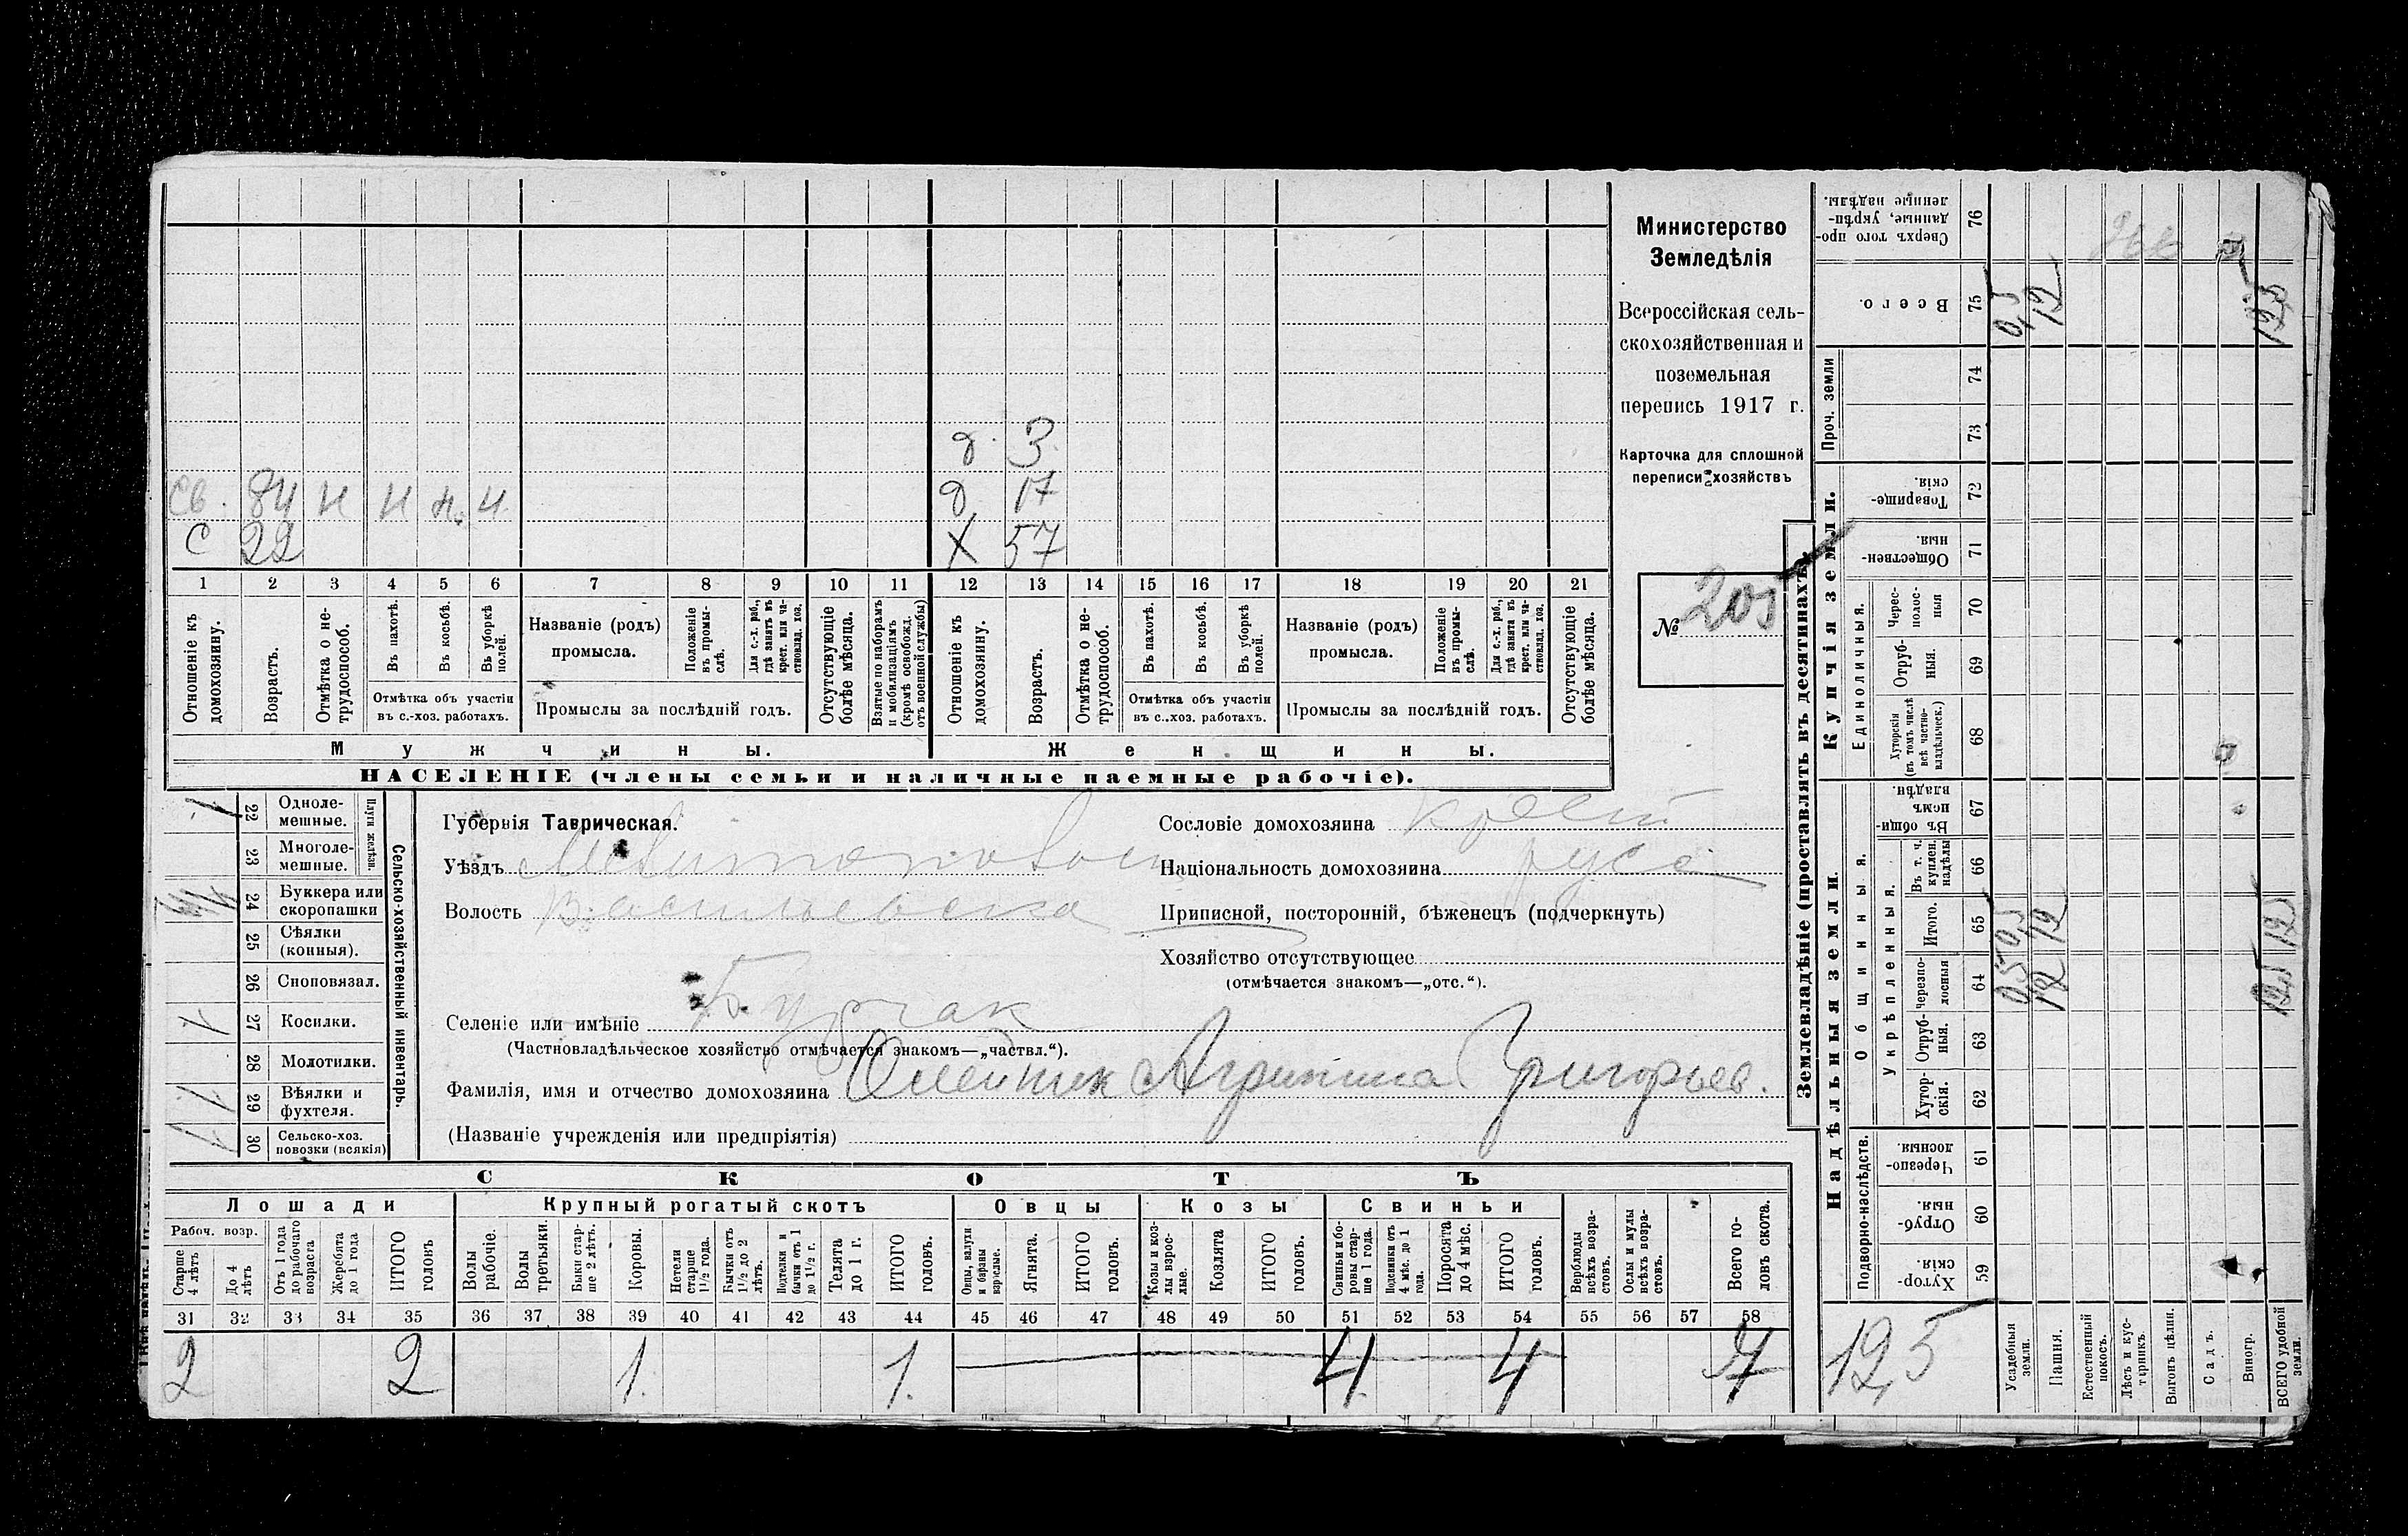 Министерство
Земледѣлія
Всероссійская сель-
скохозяйственная и
поземельная
перепись 1917 г.
Карточка для сплошной
переписи хозяйствъ
№ 205
д. 3
Св. 84 н н н. н. д 17
С 22 Х 57
1 2 3 4 5 6 7 8 9 10 11 12 13 14 15 16 17 18 19 20 21
Отношеніе къ домохозяину.
Возрастъ.
Отмѣтка о не-трудоспособ.
Въ пахотѣ.
Въ косьбѣ.
Въ уборкѣ полей.
Отмѣтка объ участіи
въ с.-хоз. работахъ.
Названіе (родъ)
промысла.
Положеніе въ промы-слѣ.
Для с.-х. раб., гдѣ занятъ въ крест. или ча-ствовлад. хоз.
Промыслы за послѣдній годъ.
Отсутствующіе болѣе мѣсяца.
Взятые по наборамъ и мобилизаціямъ (кромѣ освобожд. отъ военной службы)
Отношеніе къ домохозяину.
Возрастъ.
Отмѣтка о не-трудоспособ.
Въ пахотѣ.
Въ косьбѣ.
Въ уборкѣ полей.
Отмѣтка объ участіи
въ с.-хоз. работахъ.
Названіе (родъ)
промысла.
Положеніе въ промы-слѣ.
Для с.-х. раб., гдѣ занята въ крест. или ча-ствовлад. хоз.
Промыслы за послѣдній годъ.
Отсутствующіе болѣе мѣсяца.
Мужчины. Женщины.
НАСЕЛЕНІЕ (члены семьи и наличные наемные рабочіе).
Сельско-хозяйственный инвентарь.
Плуги желѣзн.
1 22 Одноле-мешные.
23 Многоле-мешные.
24 Буккера или скоропашки
25 Сѣялки (конныя).
26 Сноповязал.
1 27 Косилки.
28 Молотилки.
29 Вѣялки и фухтеля.
30 Сельско-хоз. повозки (всякія)
Губернія Таврическая.
Уѣздъ Мелитопольск
Волость Васильевска
Селеніе или имѣніе Бурчак
(Частновладѣльческое хозяйство отмѣчается знакомъ—„частвл.“).
Фамилія, имя и отчество домохозяина Олейник Агрипина Григорьев.
(Названіе учрежденія или предпріятія)
Сословіе домохозяина крест
Національность домохозяина русс
Приписной, посторонній, бѣженецъ (подчеркнуть)
Хозяйство отсутствующее
(отмѣчается знакомъ—„отс.“).
СКОТЪ
Лошади Крупный рогатый скотъ Овцы Козы Свиньи
Рабоч. возр.
Старше 4 лѣтъ
До 4 лѣтъ
Отъ 1 года до рабочаго возраста
Жеребята до 1 года
ИТОГО головъ
Волы рабочіе.
Волы третьяки.
Быки стар-ше 2 лѣтъ.
Коровы.
Нетели старше 1½ года.
Бычки отъ 1½ до 2 лѣтъ.
Подтелки и бычки отъ 1 до 1½ г.
Телята до 1 г.
ИТОГО головъ.
Овцы, валухи и бараны взрослые.
Ягнята.
ИТОГО головъ.
Козы и коз-лы взрос-лые.
Козлята
ИТОГО головъ.
Свиньи и бо-ровы стар-ше 1 года.
Подсвинки отъ 4 мѣс. до 1 года.
Поросята до 4 мѣс.
ИТОГО головъ.
Верблюды всѣхъ возра-стовъ.
Ослы и мулы всѣхъ возра-стовъ.
Всего го-ловъ скота.
31 32 33 34 35 36 37 38 39 40 41 42 43 44 45 46 47 48 49 50 51 52 53 54 55 56 57 58
2 2 1. 1. 4 4 7
Землевладѣніе (проставлять въ десятинахъ).
Купчія земли.
Надѣльныя земли.
Сверхъ того про-данные, укрѣп-ленные надѣлы. 76
Всего. 75 0,5 12 12,5
Проч. земли 74
73
Товарище-скія. 72
Обществен-ныя. 71
Единоличныя.
Черес-полос-ныя 70
Отруб-ныя. 69
Хуторскія (въ томъ числѣ всѣ частно-владѣльческ.) 68
Общинныя.
Въ общи-номъ владѣн. 67
Укрѣпленныя.
Въ т. ч. куплен. надѣлы 66
Итого. 65 0,5 12
Черезпо-лосныя 64 0,5 12
Отруб-ныя. 63
Хутор-скія. 62
Подворно-наслѣдств.
Черезпо-лосныя 61
Отруб-ныя. 60
Хутор-скія. 59
12,5
Усадебныя земли.
Пашня.
Естественный покосъ.
Лѣсъ и кус-тарникъ.
Выгонъ цѣлин.
Садъ.
Виногр.
ВСЕГО удобной земли.